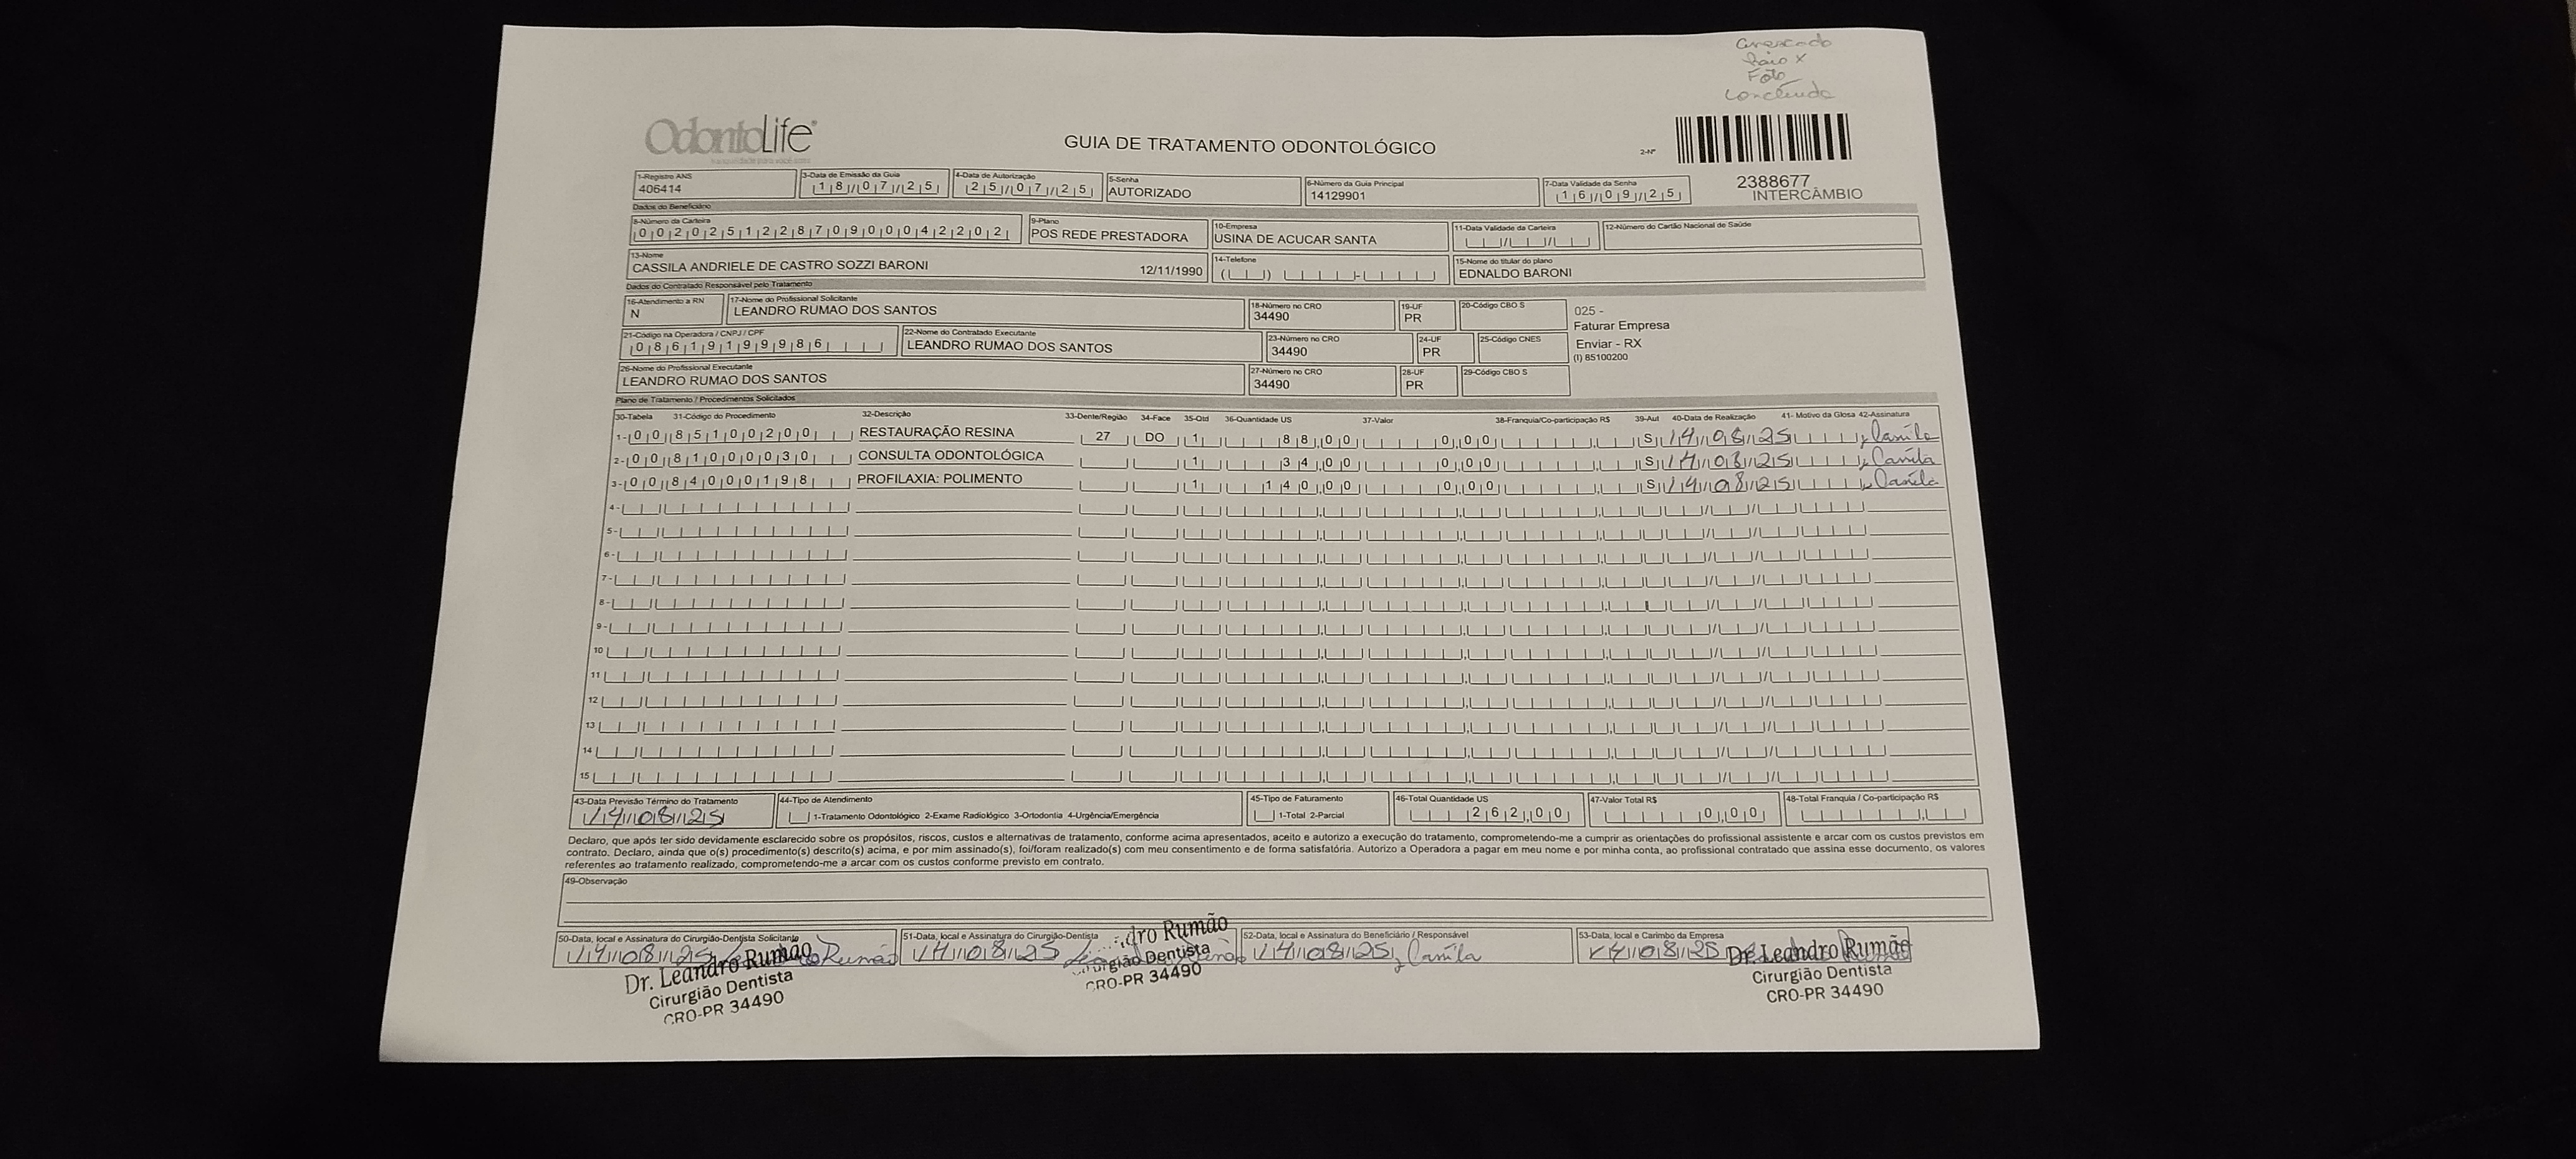 Raio X
Foto
Concluído
OdontoLife®
GUIA DE TRATAMENTO ODONTOLÓGICO
2-Nº
2388677
INTERCÂMBIO
1-Registro ANS
406414
3-Data de Emissão da Guia
18/07/25
4-Data de Autorização
25/07/25
5-Senha
AUTORIZADO
6-Número da Guia Principal
14129901
7-Data Validade da Senha
16/09/25
Dados do Beneficiário
8-Número da Carteira
00202512287090004 2202
9-Plano
POS REDE PRESTADORA
10-Empresa
USINA DE ACUCAR SANTA
11-Data Validade da Carteira
12-Número do Cartão Nacional de Saúde
13-Nome
CASSILA ANDRIELE DE CASTRO SOZZI BARONI 12/11/1990
14-Telefone
15-Nome do titular do plano
EDNALDO BARONI
Dados do Contratado Responsável pelo Tratamento
16-Atendimento a RN
N
17-Nome do Profissional Solicitante
LEANDRO RUMAO DOS SANTOS
18-Número no CRO
34490
19-UF
PR
20-Código CBO S
025 -
Faturar Empresa
Enviar - RX
(I) 85100200
21-Código na Operadora / CNPJ / CPF
08619199986
22-Nome do Contratado Executante
LEANDRO RUMAO DOS SANTOS
23-Número no CRO
34490
24-UF
PR
25-Código CNES
26-Nome do Profissional Executante
LEANDRO RUMAO DOS SANTOS
27-Número no CRO
34490
28-UF
PR
29-Código CBO S
Plano de Tratamento / Procedimentos Solicitados
30-Tabela 31-Código do Procedimento 32-Descrição 33-Dente/Região 34-Face 35-Qtd 36-Quantidade US 37-Valor 38-Franquia/Co-participação R$ 39-Aut 40-Data de Realização 41- Motivo da Glosa 42-Assinatura
1- 00 85100200 RESTAURAÇÃO RESINA 27 DO 1 88,00 0,00 S 14/08/25 Camila
2- 00 81000030 CONSULTA ODONTOLÓGICA 1 34,00 0,00 S 14/08/25 Camila
3- 00 84000198 PROFILAXIA: POLIMENTO 1 140,00 0,00 S 14/08/25 Camila
4-
5-
6-
7-
8-
9-
10
11
12
13
14
15
43-Data Previsão Término do Tratamento
14/08/25
44-Tipo de Atendimento
1-Tratamento Odontológico 2-Exame Radiológico 3-Ortodontia 4-Urgência/Emergência
45-Tipo de Faturamento
1-Total 2-Parcial
46-Total Quantidade US
262,00
47-Valor Total R$
0,00
48-Total Franquia / Co-participação R$
Declaro, que após ter sido devidamente esclarecido sobre os propósitos, riscos, custos e alternativas de tratamento, conforme acima apresentados, aceito e autorizo a execução do tratamento, comprometendo-me a cumprir as orientações do profissional assistente e arcar com os custos previstos em
contrato. Declaro, ainda que o(s) procedimento(s) descrito(s) acima, e por mim assinado(s), foi/foram realizado(s) com meu consentimento e de forma satisfatória. Autorizo a Operadora a pagar em meu nome e por minha conta, ao profissional contratado que assina esse documento, os valores
referentes ao tratamento realizado, comprometendo-me a arcar com os custos conforme previsto em contrato.
49-Observação
50-Data, local e Assinatura do Cirurgião-Dentista Solicitante
14/08/25 Rumão
Dr. Leandro Rumão
Cirurgião Dentista
CRO-PR 34490
51-Data, local e Assinatura do Cirurgião-Dentista
14/08/25
dro Rumão
Cirurgião Dentista
CRO-PR 34490
52-Data, local e Assinatura do Beneficiário / Responsável
14/08/25 Camila
53-Data, local e Carimbo da Empresa
14/08/25
Dr. Leandro Rumão
Cirurgião Dentista
CRO-PR 34490